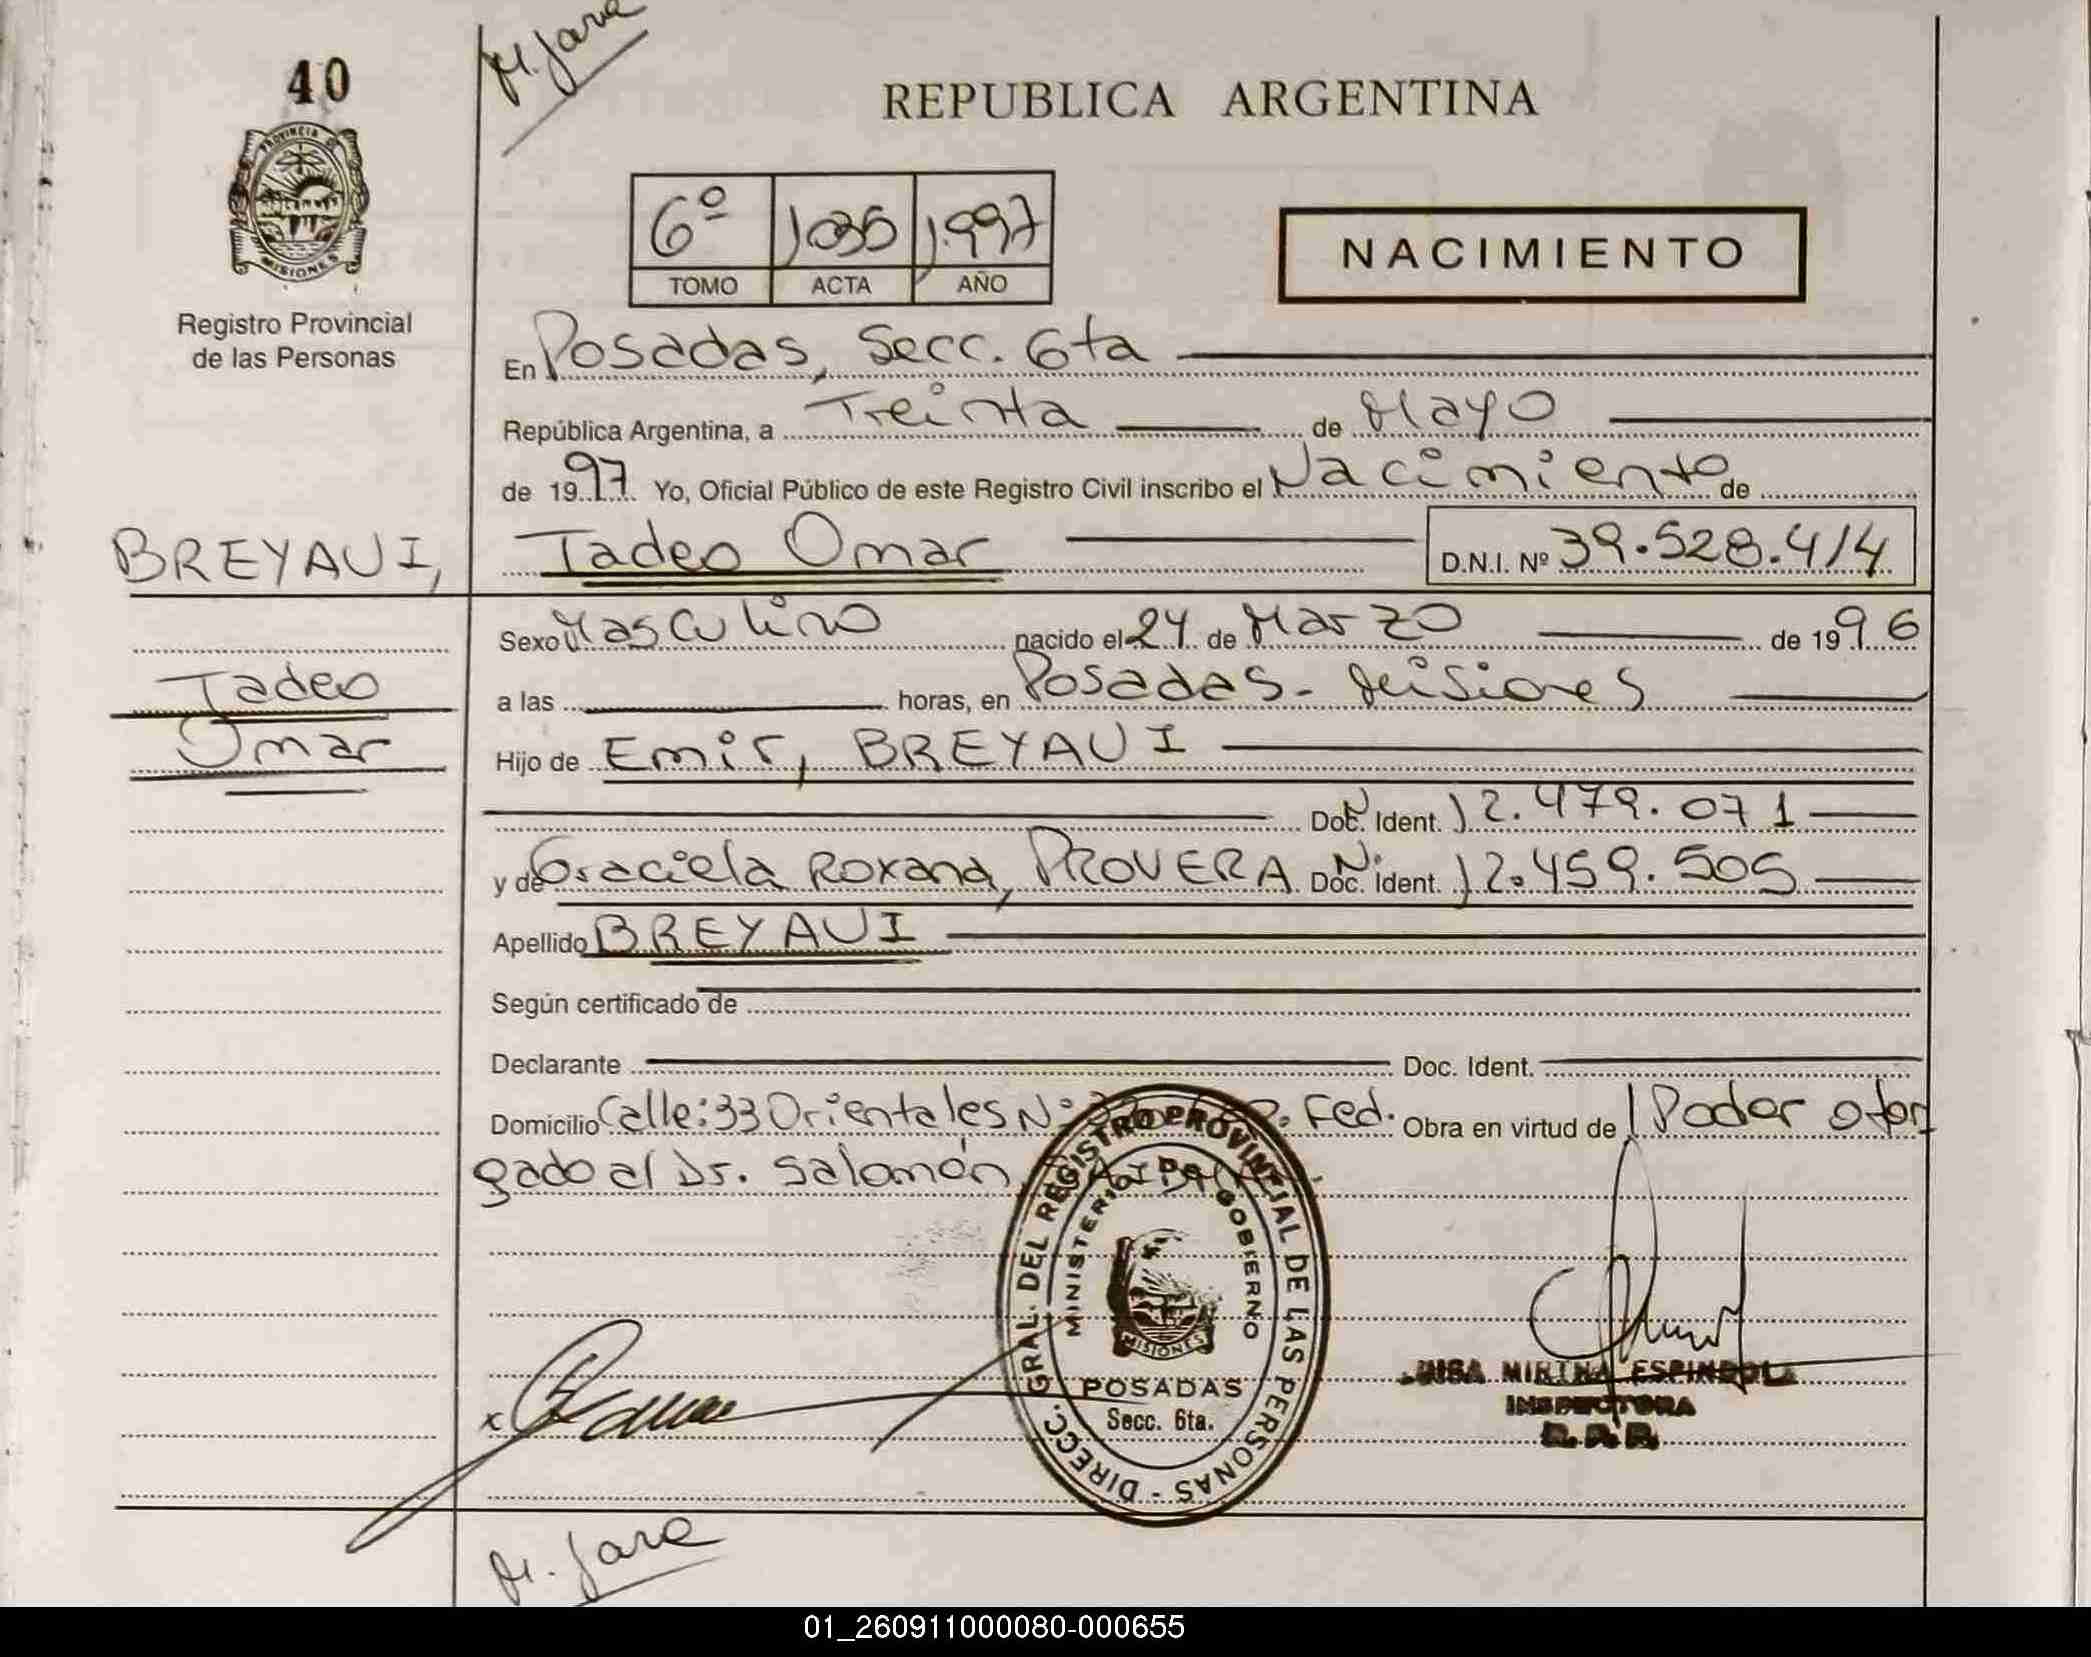 40
M. Jara
PROVINCIA DE
MISIONES
Registro Provincial
de las Personas
REPUBLICA ARGENTINA
6º 1035 1.997
TOMO ACTA AÑO
NACIMIENTO
En Posadas, Secc. 6ta
República Argentina, a Treinta de Mayo
de 1997 Yo, Oficial Público de este Registro Civil inscribo el Nacimiento de
BREYAUI, Tadeo Omar D.N.I. Nº 39.528.414
Sexo Masculino nacido el 24 de Marzo de 1996
Tadeo
a las horas, en Posadas - Misiones
Omar
Hijo de Emir, BREYAUI
Doc. Ident. N. 12.479.071
y de Graciela Roxana, PROVERA Doc. Ident. N. 12.459.505
Apellido BREYAUI
Según certificado de
Declarante Doc. Ident.
Domicilio Calle: 33 Orientales Nº Fed. Obra en virtud de 1 Poder otor
gado al Dr. Salomón
DIRECC. GRAL. DEL REGISTRO PROVINCIAL DE LAS PERSONAS -
MINISTERIO GOBIERNO
MISIONES
POSADAS
Secc. 6ta.
x
LUISA MIRTHA ESPINDOLA
INSPECTORA
R.P.P.
M. Jara
01_260911000080-000655